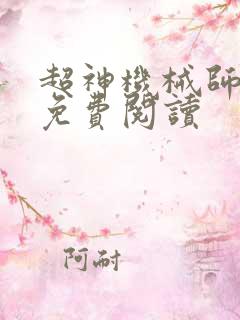 超神機械師
免費閱讀
阿耐